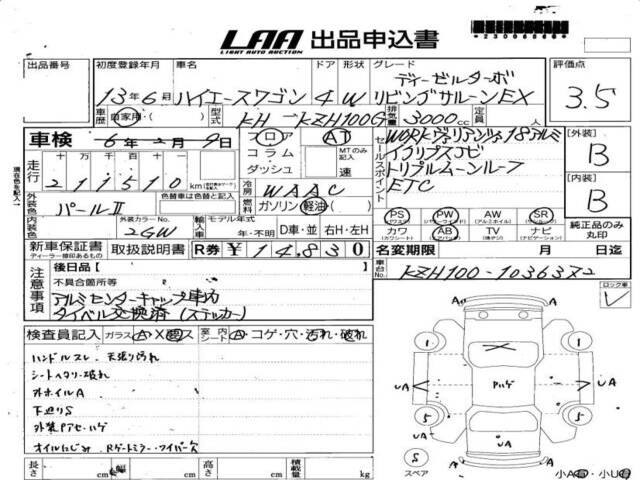 LAA 出品申込書
LIGHT AUTO AUCTION
出品番号 初度登録年月 車名 ドア 形状 グレード 評価点
13年6月 ハイエースワゴン 4 W ディーゼルターボ
リビングサルーンEX 3.5
車歴 自家用 型式 KH-KZH100G 排気量 3000cc 定員 人
車検 6年2月9日 フロア AT
コラム
ダッシュ
MTのみ記入 速
セールスポイント
WORKヴァリアンツァ18アルミ
イクリプスナビ
トリプルムーンルーフ
ETC
[外装] B
[内装] B
走行 十 万 千 百 十
211510 km
冷房 WAAC
外装色 パールⅡ 色替車は色替と記入
燃料 ガソリン 軽油
内装色 外装カラーNo. 2GW
輸入車 モデル年式 年・不明 D車・並 右H・左H
PS PW AW SR
カワ AB TV ナビ
純正品のみ丸印
新車保証書 取扱説明書 R券 ¥14,830
ディーラー捺印あるもの
名変期限 月 日迄
車台No. KZH100-1036372
注意事項 後日品[ ]
不具合箇所等
アルミセンターキャップ車内
タイベル交換済(ステッカー)
ロック車
検査員記入 ガラス A・X・ス 室内 シート A・コゲ・穴・汚れ・破れ
ハンドルスレ・天張り汚れ
シートヘタリ・破れ
外ホイルA
下廻りS
外装Pアセ・ハゲ
オイルにじみ Rゲートミラー・ワイパー欠
A A
1 1
UA Pハゲ UA
5 5
UA
S
スペア
A A
長さ cm 幅 cm 高さ cm 積載量 kg
小A・小U